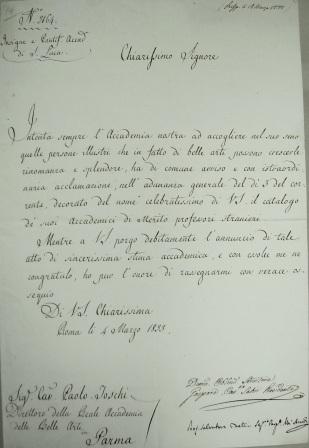 N.° 2164
Insigne e Pontif. Accad.
di S. Luca
Chiarissimo Signore
Intenta sempre l'Accademia nostra ad accogliere nel suo seno
quelle persone illustri che in fatto di belle arti possono crescerle
rinomanza e splendore, ha di comune avviso e con istraordi
naria acclamazione, nell'adunanza generale del dì 3 del cor
rente, decorato del nome celebratissimo di V.S. il catalogo
de' suoi Accademici di Merito professori stranieri.
Mentre a V.S. porgo debitamente l'annuncio di tale
atto di sincerissima stima accademica, e con essole me ne
congratulo, ho pur l'onore di rassegnarmi con verace os
sequio
Di V.S. Chiarissima
Roma li 4 Marzo 1833.
Sig. Cav. Paolo Toschi
Direttore della Reale Accademia
delle Belle Arti
Parma